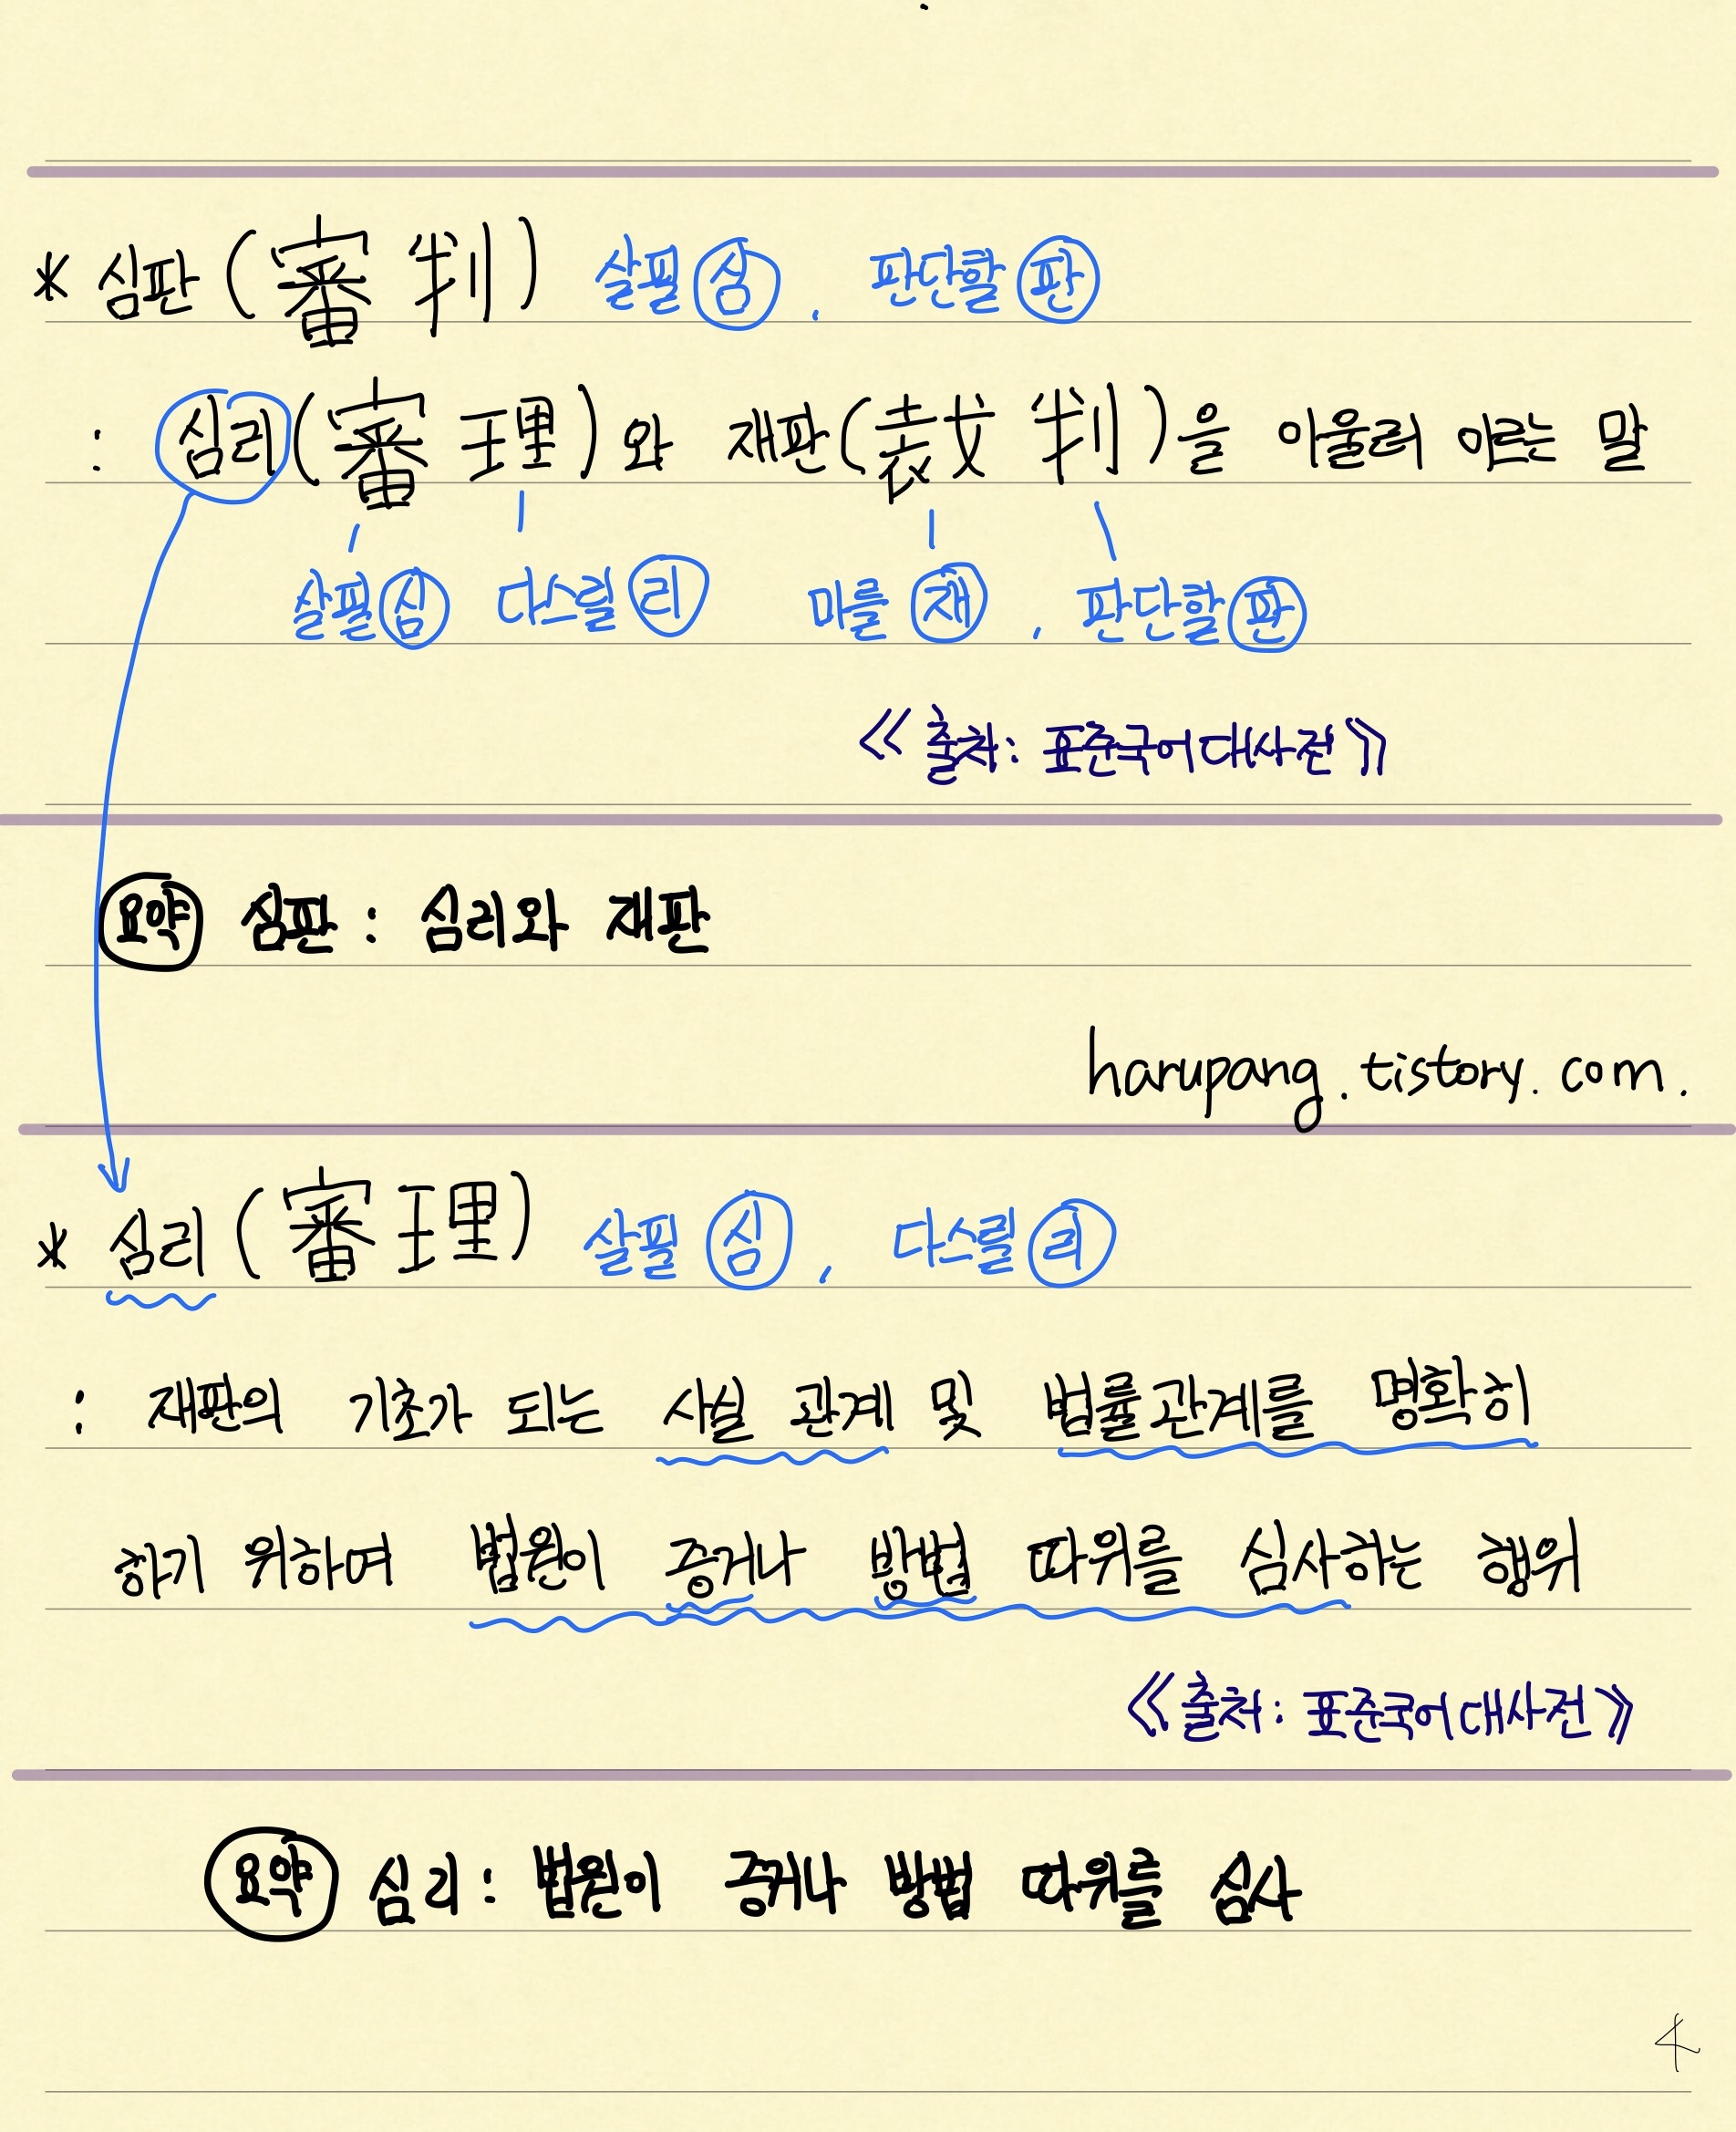 * 심판(審判) 살필 심, 판단할 판
: 심리(審理)와 재판(裁判)을 아울러 이르는 말
살필 심 다스릴 리 마를 재, 판단할 판
《출처: 표준국어대사전》
요약 심판 : 심리와 재판
harupang.tistory.com.
* 심리(審理) 살필 심, 다스릴 리
: 재판의 기초가 되는 사실 관계 및 법률관계를 명확히
하기 위하여 법원이 증거나 방법 따위를 심사하는 행위
《출처: 표준국어대사전》
요약 심리 : 법원이 증거나 방법 따위를 심사
4